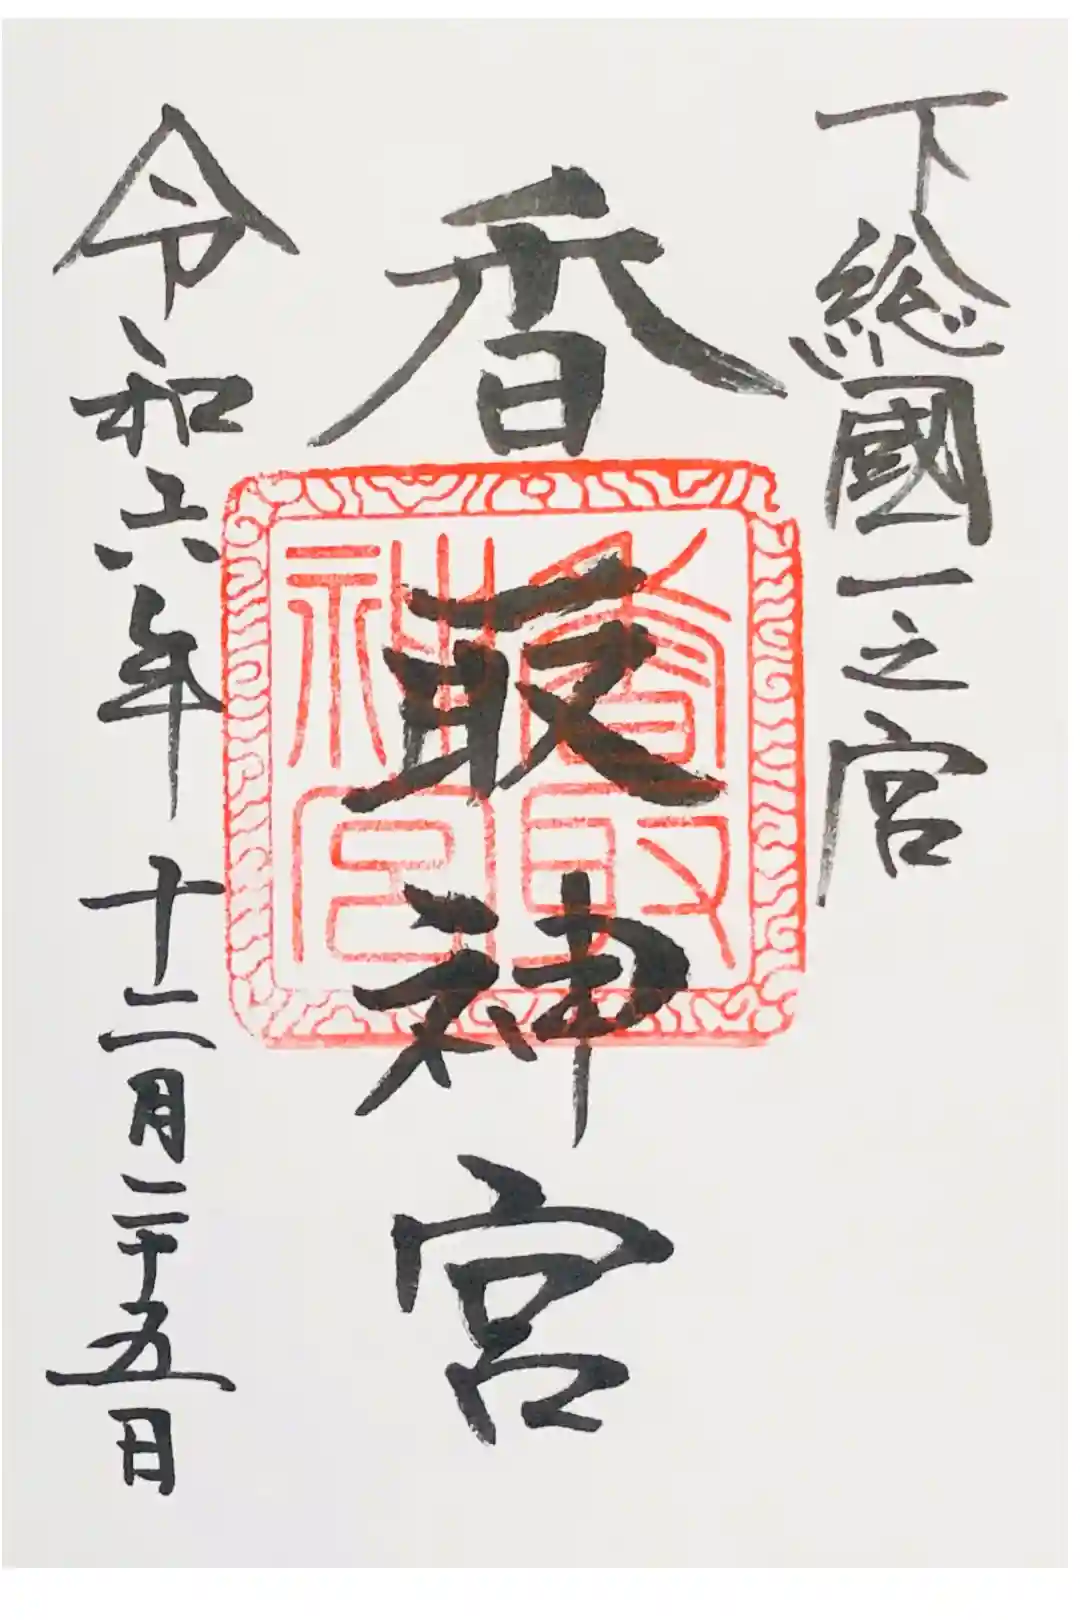 下総國一之宮
香取神宮
香取神宮
令和六年 十二月二十五日